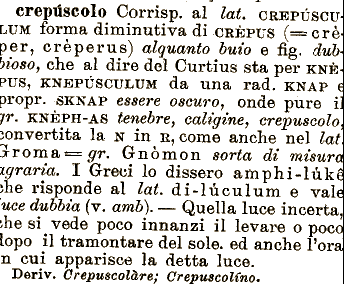 crepúscolo Corrisp. al lat. CREPÚSCU-
LUM forma diminutiva di CRÈPUS (= crè-
per, crèperus) alquanto buio e fig. dub-
bioso, che al dire del Curtius sta per KNÈ-
PUS, KNEPÚSCULUM da una rad. KNAP e
propr. SKNAP essere oscuro, onde pure il
gr. KNÈPH-AS tenebre, caligine, crepuscolo,
convertita la N in R, come anche nel lat.
Groma = gr. Gnòmon sorta di misura
agraria. I Greci lo dissero amphi-lúkê
che risponde al lat. di-lúculum e vale
luce dubbia (v. amb). — Quella luce incerta,
che si vede poco innanzi il levare o poco
dopo il tramontare del sole. ed anche l'ora
in cui apparisce la detta luce.
Deriv. Crepuscolàre; Crepuscolíno.